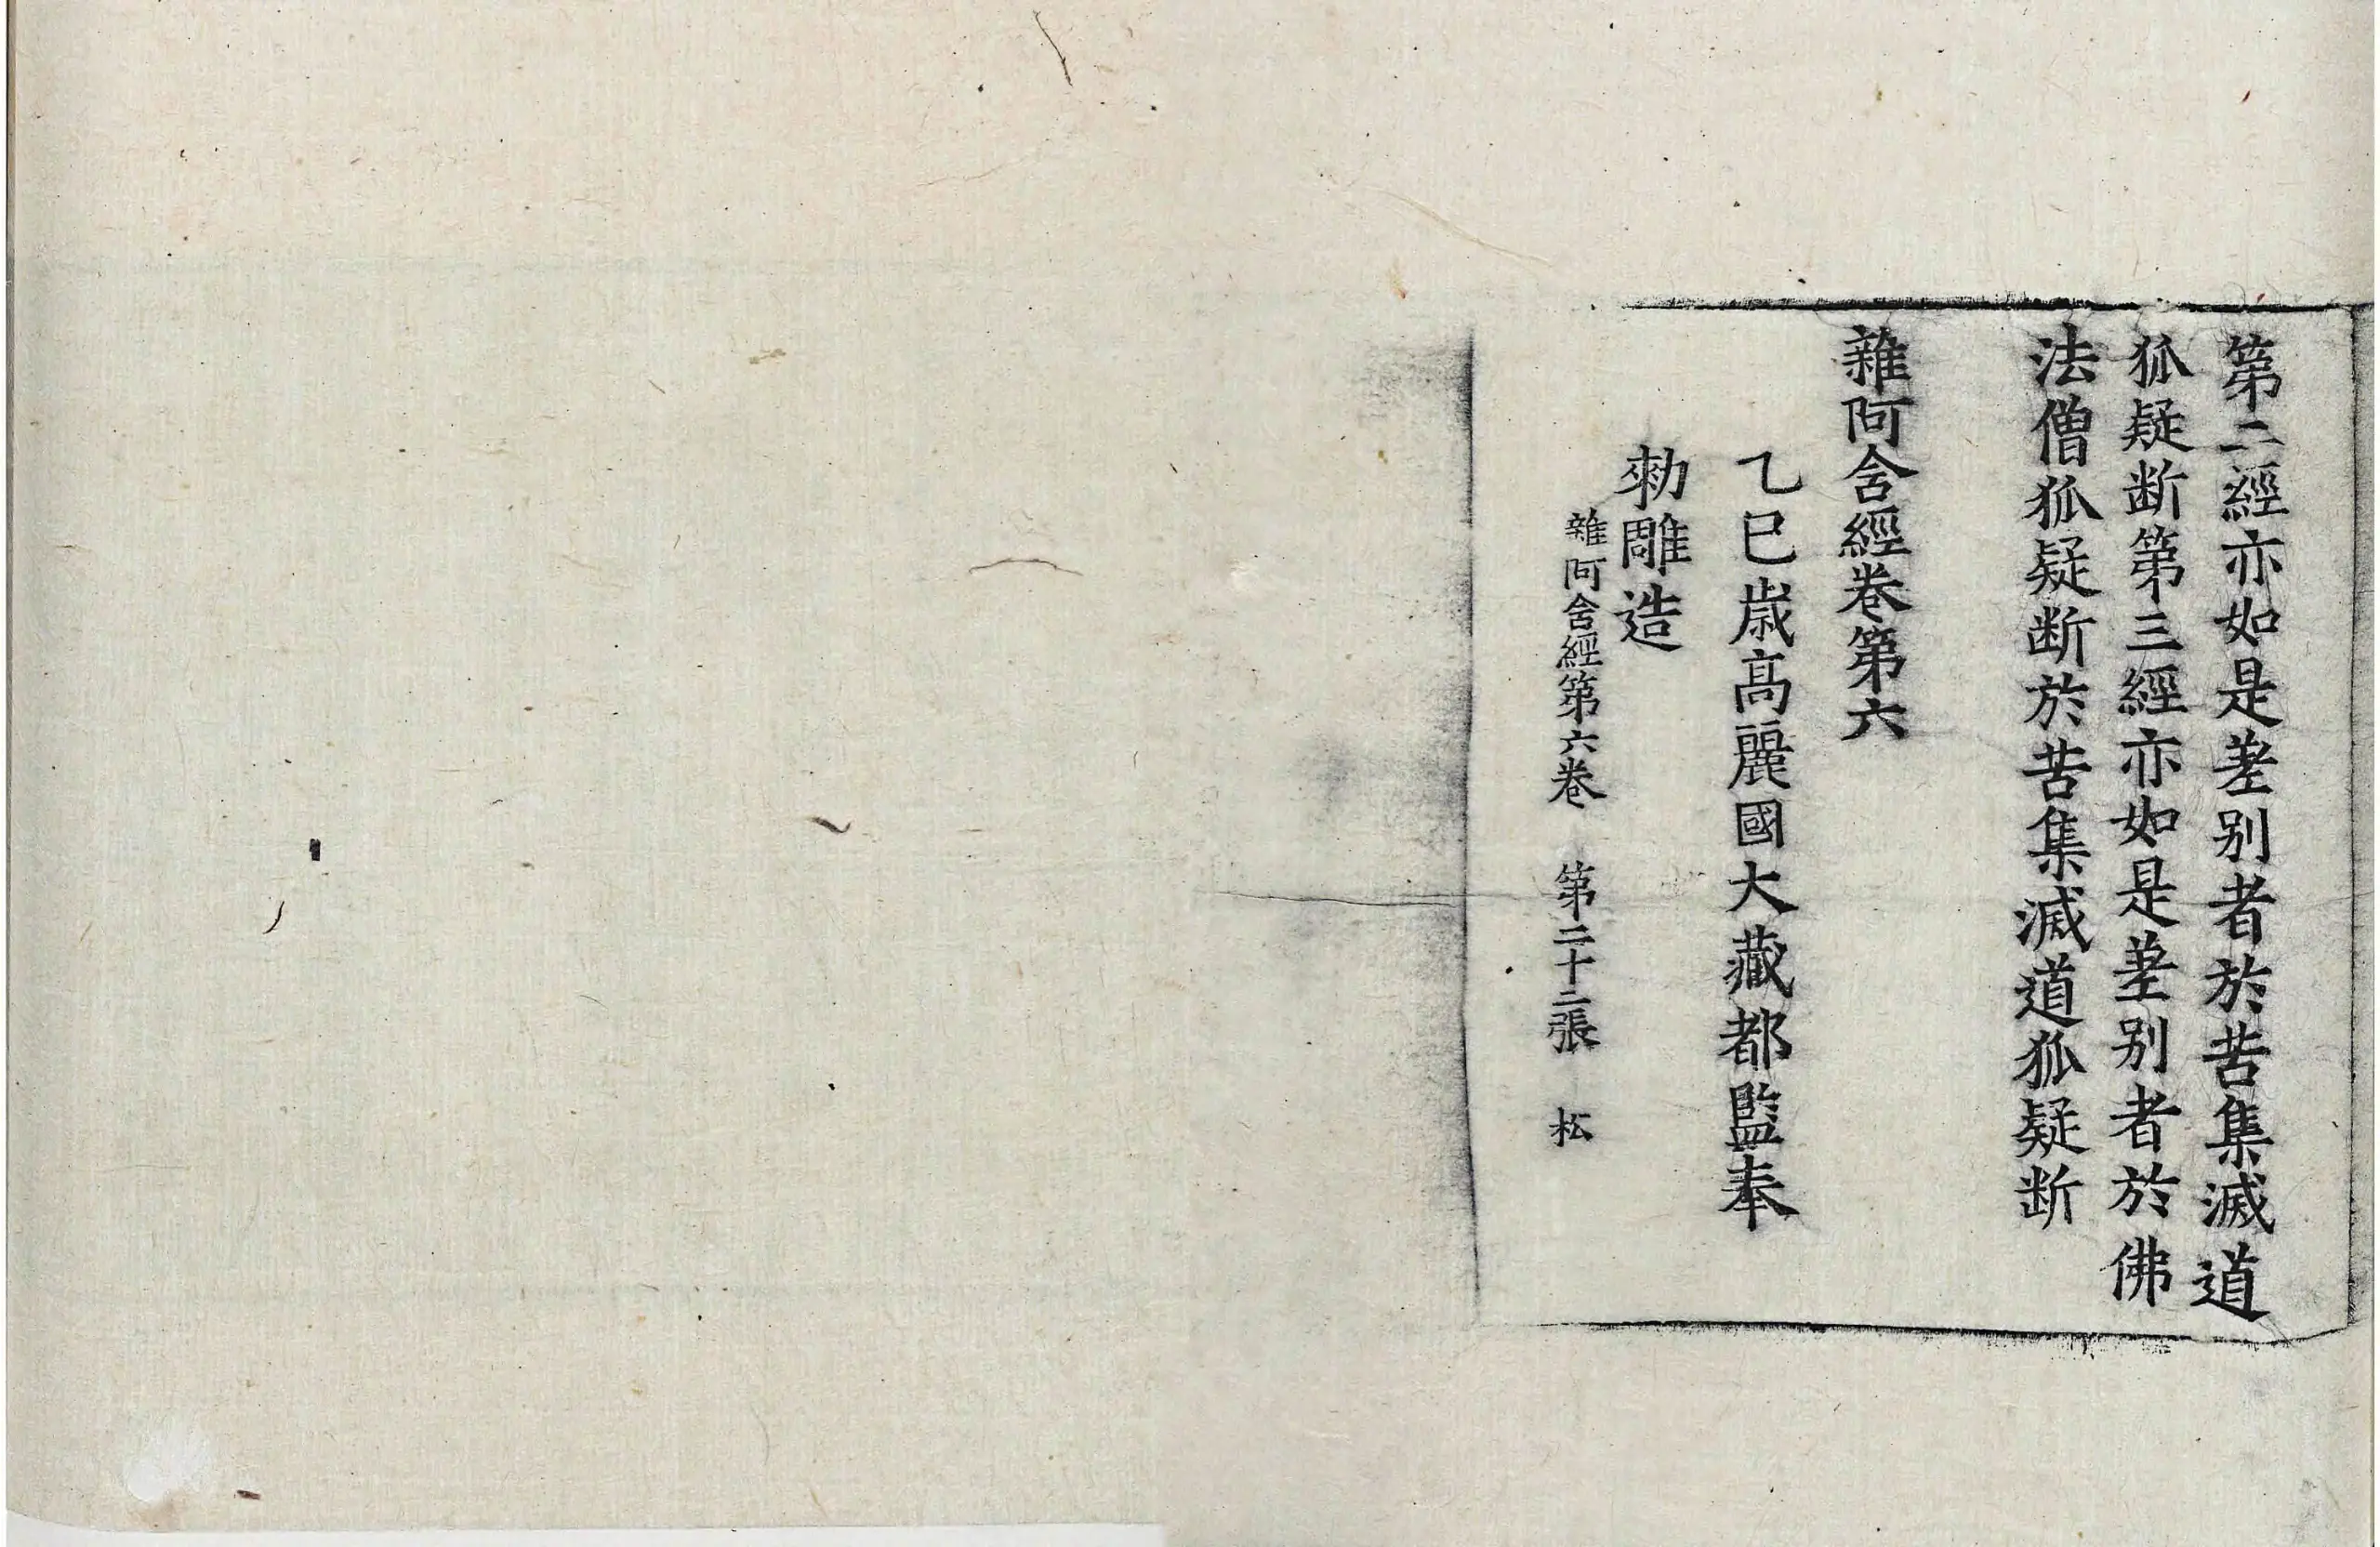 第二經亦如是差別者於苦集滅道
狐疑断第三經亦如是差別者於佛
法僧狐疑断於苦集滅道狐疑断
雜阿含經卷第六
乙巳歳高麗國大藏都監奉
勅雕造
雜阿含經第六卷 第二十二張 松